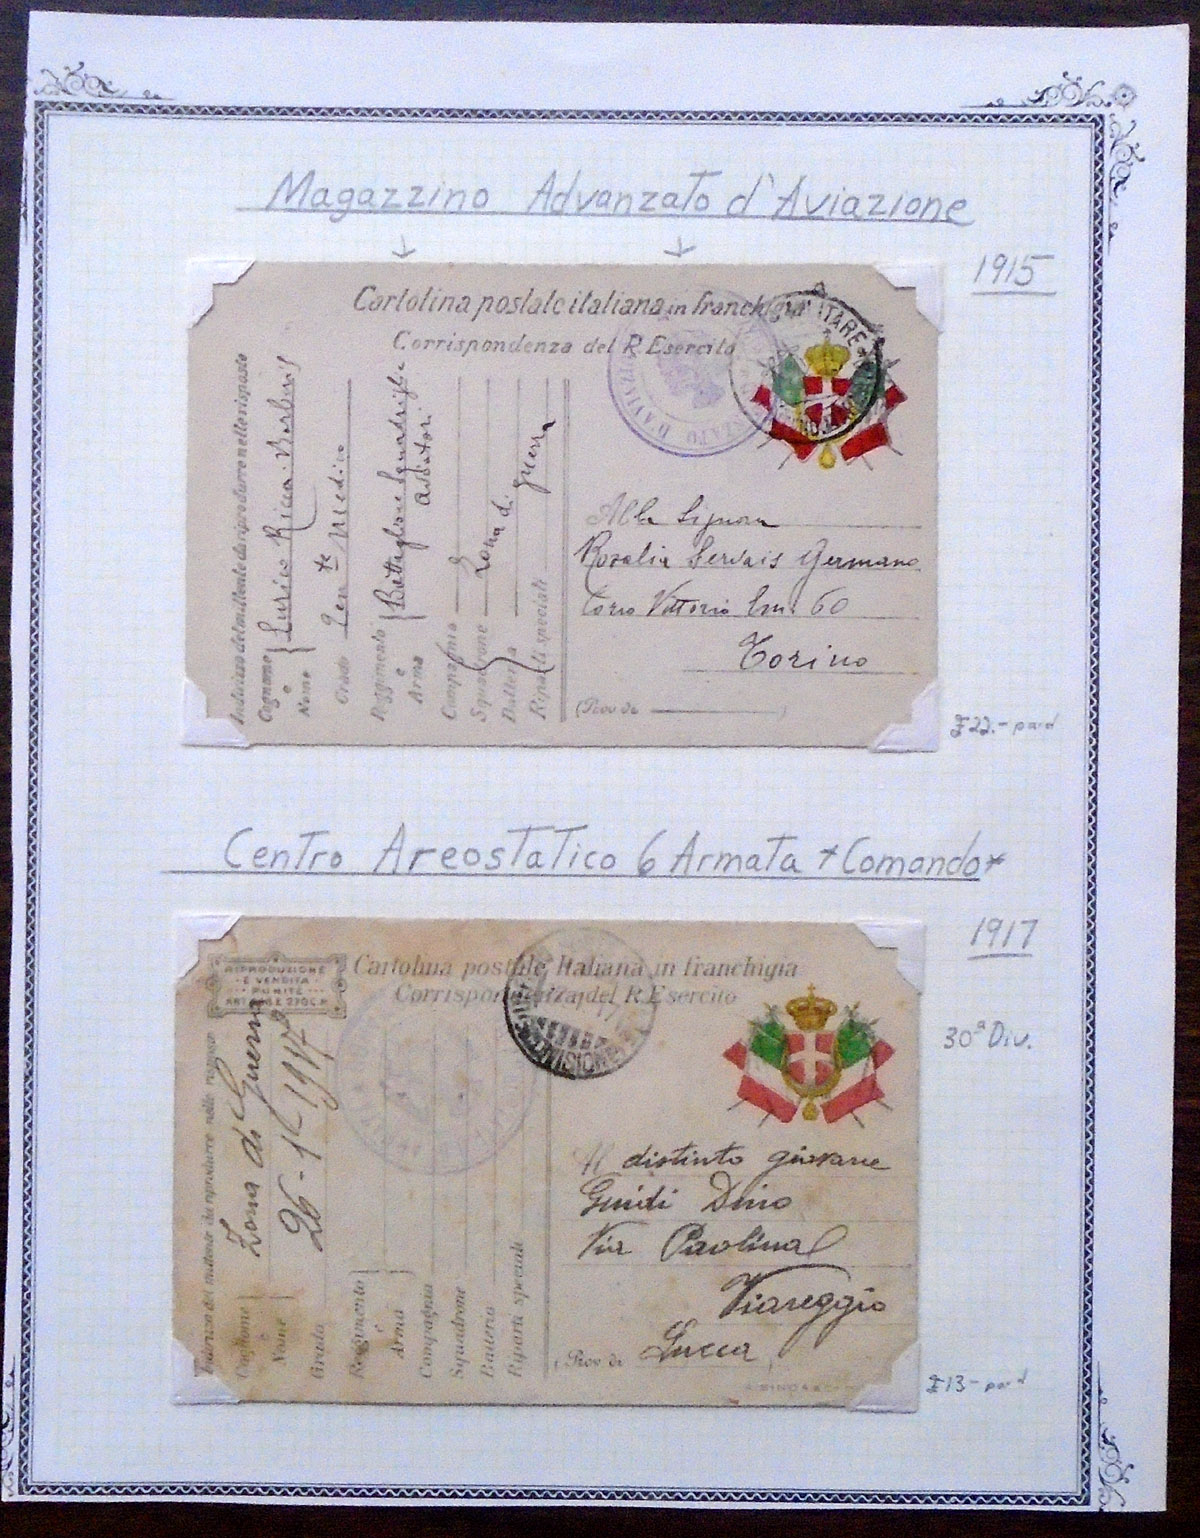 Magazzino Advanzato d'Aviazione
1915
Cartolina postale italiana in franchigia
Corrispondenza del R. Esercito
ITARE
TATO D'AVIA
Indirizzo del mittente da riprodurre nelle risposte
Cognome
e
Nome
Enrico Ricca-Barberis
Grado Ten.te Medico
Reggimento
e
Arma
Battaglione Squadriglie
Compagnia
Squadrone Zona di guerra
Batteria
Riparti speciali
Alla Signora
Rosalia Servais Germano
Corso Vittorio Em. 60
Torino
(Prov di )
£22.- paid
Centro Areostatico 6 Armata *Comando*
1917
30ª Div.
RIPRODUZIONE
E VENDITA
Cartolina postale Italiana in franchigia
Corrispondenza del R. Esercito
DIVISIONE
Indirizzo del mittente da riprodurre nelle risposte
Zona di Guerra
26-1-1917
Cognome
e
Nome
Grado
Reggimento
e
Arma
Compagnia
Squadrone
Batteria
Riparti speciali
Al distinto giovane
Guidi Dino
Via Paolina
Viareggio
(Prov di Lucca)
£13- paid